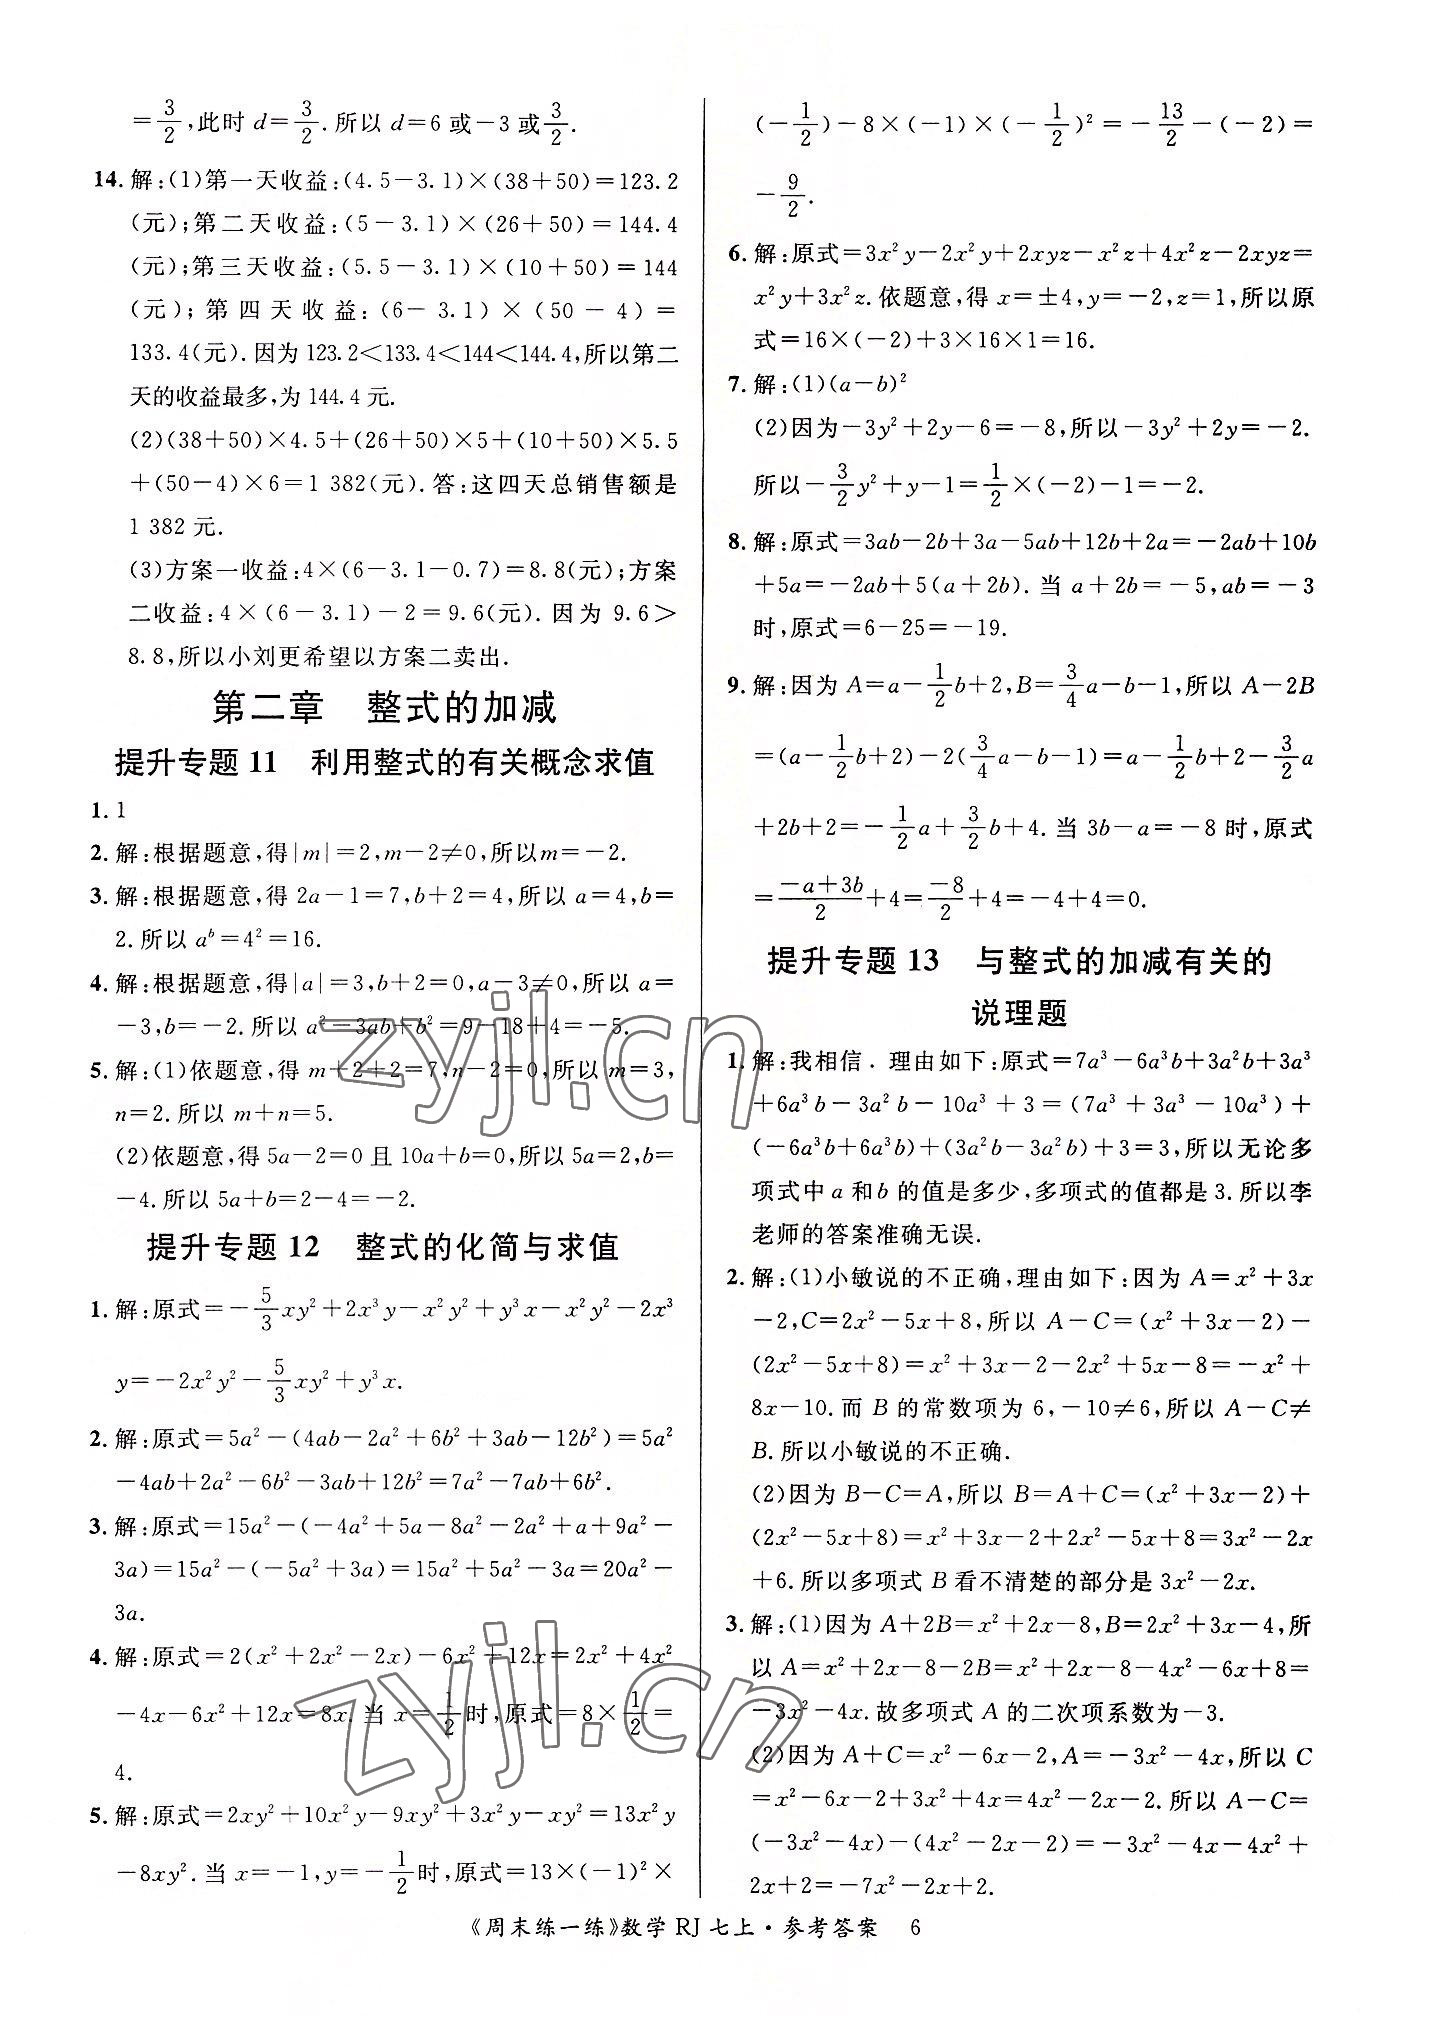 =3/2,此时 d=3/2.所以 d=6 或-3 或3/2.
14.解:(1)第一天收益:(4.5-3.1)×(38+50)=123.2
(元);第二天收益:(5-3.1)×(26+50)=144.4
(元);第三天收益:(5.5-3.1)×(10+50)=144
(元);第四天收益:(6-3.1)×(50-4)=
133.4(元).因为 123.2<133.4<144<144.4,所以第二
天的收益最多,为 144.4 元.
(2)(38+50)×4.5+(26+50)×5+(10+50)×5.5
+(50-4)×6=1 382(元).答:这四天总销售额是
1 382 元.
(3)方案一收益:4×(6-3.1-0.7)=8.8(元);方案
二收益:4×(6-3.1)-2=9.6(元).因为 9.6>
8.8,所以小刘更希望以方案二卖出.
第二章 整式的加减
提升专题 11 利用整式的有关概念求值
1.1
2.解:根据题意,得|m|=2,m-2≠0,所以m=-2.
3.解:根据题意,得 2a-1=7,b+2=4,所以 a=4,b=
2.所以 a^b=4²=16.
4.解:根据题意,得|a|=3,b+2=0,a-3≠0,所以 a=
-3,b=-2.所以 a²-3ab+b²=9-18+4=-5.
5.解:(1)依题意,得 m+2+2=7,n-2=0,所以 m=3,
n=2.所以 m+n=5.
(2)依题意,得 5a-2=0 且 10a+b=0,所以 5a=2,b=
-4.所以 5a+b=2-4=-2.
提升专题 12 整式的化简与求值
1.解:原式=-5/3xy²+2x³y-x²y²+y³x-x²y²-2x³
y=-2x²y²-5/3xy²+y³x.
2.解:原式=5a²-(4ab-2a²+6b²+3ab-12b²)=5a²
-4ab+2a²-6b²-3ab+12b²=7a²-7ab+6b².
3.解:原式=15a²-(-4a²+5a-8a²-2a²+a+9a²-
3a)=15a²-(-5a²+3a)=15a²+5a²-3a=20a²-
3a.
4.解:原式=2(x²+2x²-2x)-6x²+12x=2x²+4x²
-4x-6x²+12x=8x.当 x=1/2时,原式=8×1/2=
4.
5.解:原式=2xy²+10x²y-9xy²+3x²y-xy²=13x²y
-8xy².当 x=-1,y=-1/2时,原式=13×(-1)²×
(-1/2)-8×(-1)×(-1/2)²=-13/2-(-2)=
-9/2.
6.解:原式=3x²y-2x²y+2xyz-x²z+4x²z-2xyz=
x²y+3x²z.依题意,得 x=±4,y=-2,z=1,所以原
式=16×(-2)+3×16×1=16.
7.解:(1)(a-b)²
(2)因为-3y²+2y-6=-8,所以-3y²+2y=-2.
所以-3/2y²+y-1=1/2×(-2)-1=-2.
8.解:原式=3ab-2b+3a-5ab+12b+2a=-2ab+10b
+5a=-2ab+5(a+2b).当 a+2b=-5,ab=-3
时,原式=6-25=-19.
9.解:因为 A=a-1/2b+2,B=3/4a-b-1,所以 A-2B
=(a-1/2b+2)-2(3/4a-b-1)=a-1/2b+2-3/2a
+2b+2=-1/2a+3/2b+4.当 3b-a=-8 时,原式
=(-a+3b)/2+4=-8/2+4=-4+4=0.
提升专题 13 与整式的加减有关的
说理题
1.解:我相信.理由如下:原式=7a³-6a³b+3a²b+3a³
+6a³b-3a²b-10a³+3=(7a³+3a³-10a³)+
(-6a³b+6a³b)+(3a²b-3a²b)+3=3,所以无论多
项式中 a 和 b 的值是多少,多项式的值都是 3.所以李
老师的答案准确无误.
2.解:(1)小敏说的不正确,理由如下:因为 A=x²+3x
-2,C=2x²-5x+8,所以 A-C=(x²+3x-2)-
(2x²-5x+8)=x²+3x-2-2x²+5x-8=-x²+
8x-10.而 B 的常数项为 6,-10≠6,所以 A-C≠
B.所以小敏说的不正确.
(2)因为 B-C=A,所以 B=A+C=(x²+3x-2)+
(2x²-5x+8)=x²+3x-2+2x²-5x+8=3x²-2x
+6.所以多项式 B 看不清楚的部分是 3x²-2x.
3.解:(1)因为 A+2B=x²+2x-8,B=2x²+3x-4,所
以 A=x²+2x-8-2B=x²+2x-8-4x²-6x+8=
-3x²-4x.故多项式 A 的二次项系数为-3.
(2)因为 A+C=x²-6x-2,A=-3x²-4x,所以 C
=x²-6x-2+3x²+4x=4x²-2x-2.所以 A-C=
(-3x²-4x)-(4x²-2x-2)=-3x²-4x-4x²+
2x+2=-7x²-2x+2.
《周末练一练》数学 RJ 七上·参考答案 6
zyjl.cn
zyjl.cn